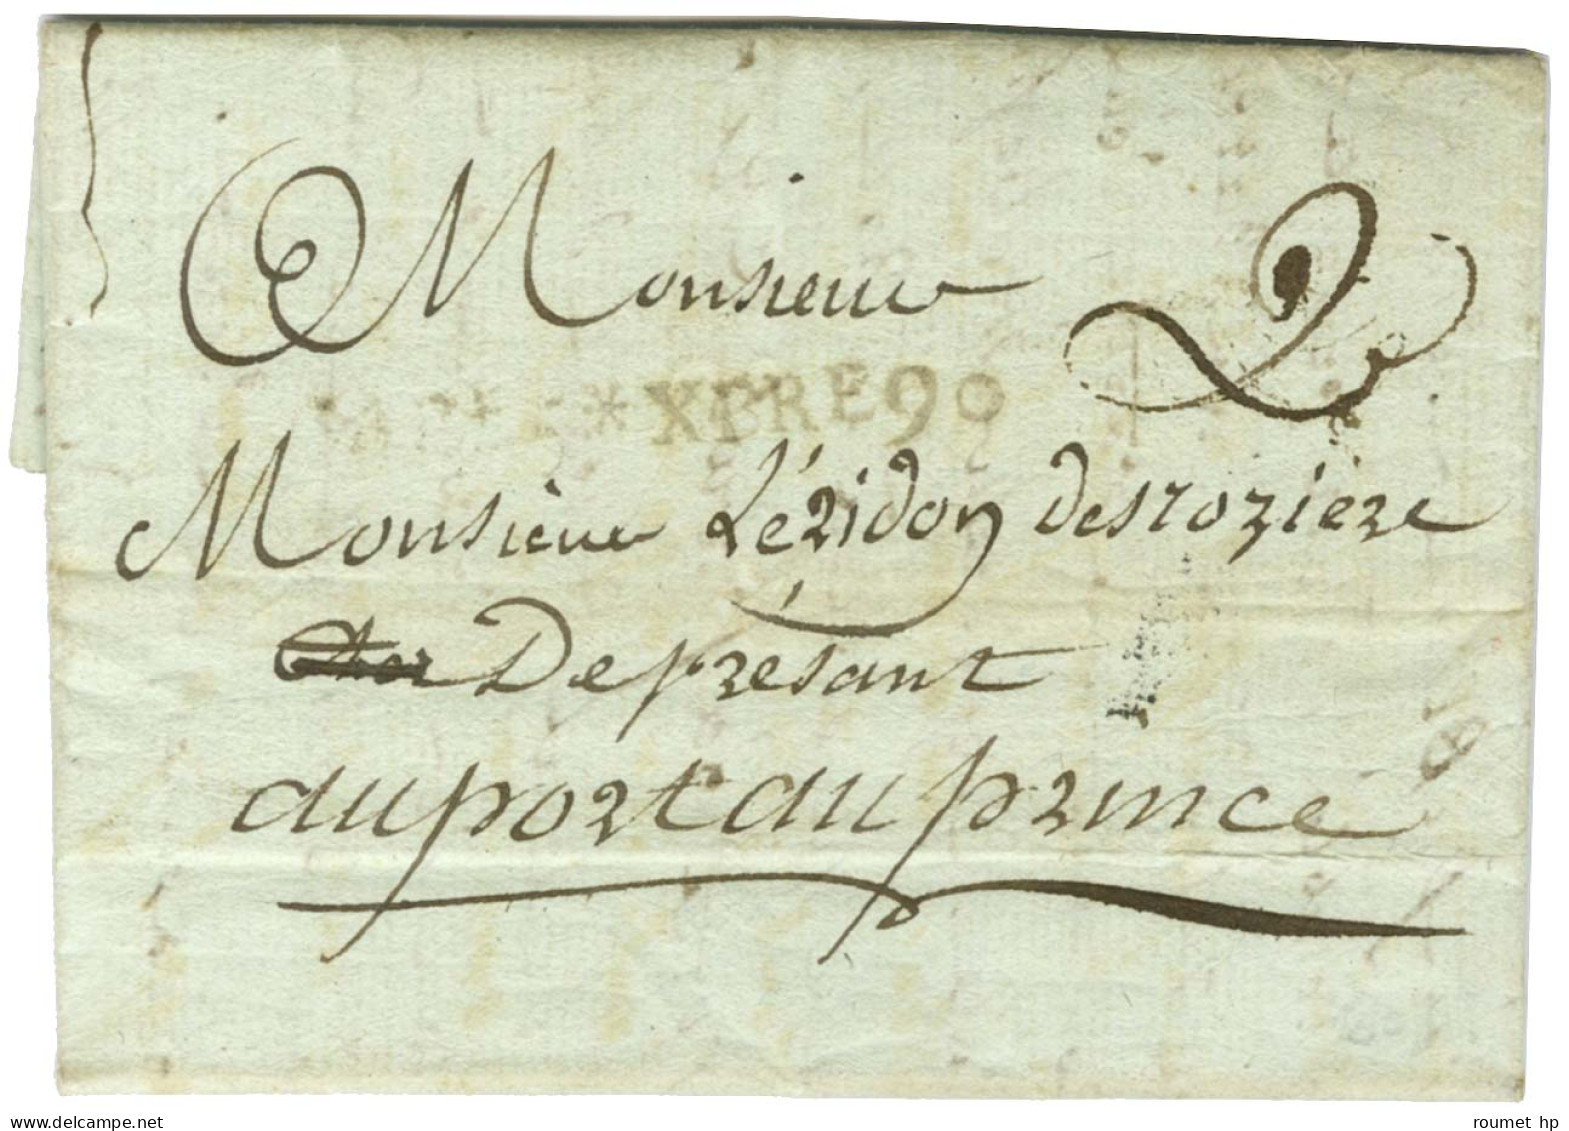 Monsieur
*XBRE90
Monsieur Lézidon desroziere
De présant
au port au prince
www.delcampe.net
roumet hp